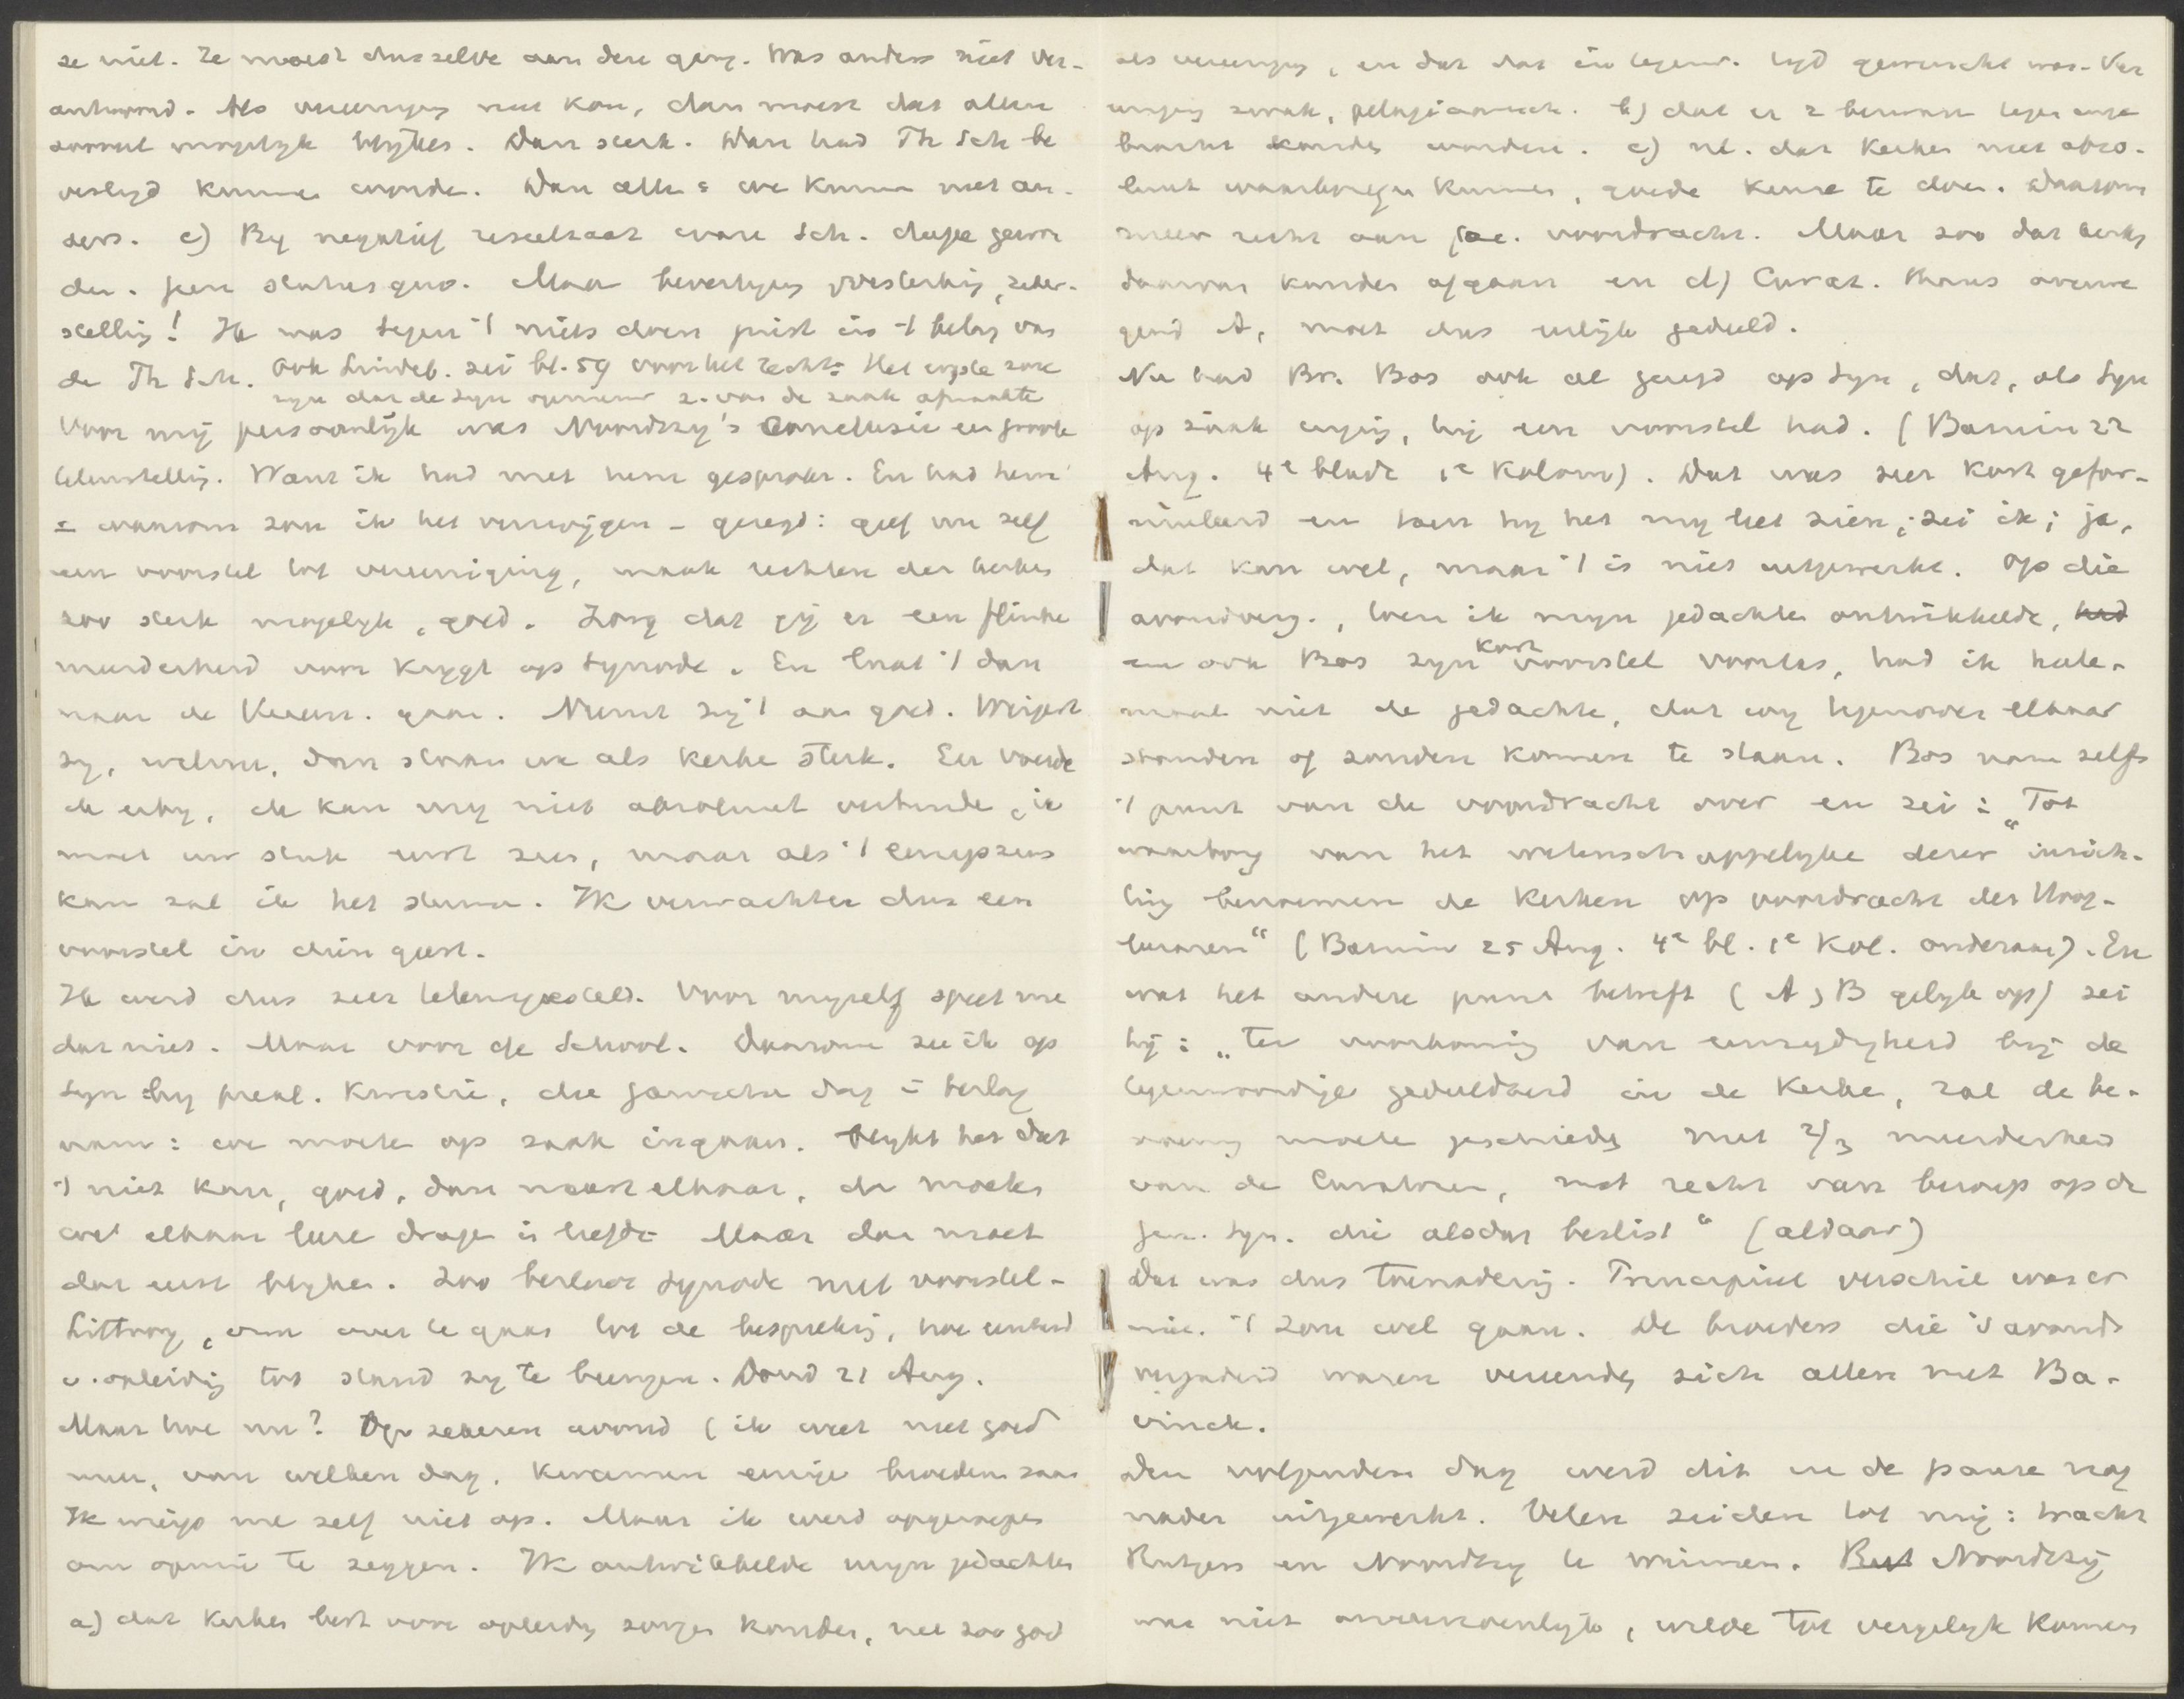 ze niet. Ze moest dus zelve aan den gang. Was anders niet ver-
antwoord. Als vereeniging niet kan, dan moest dat allen
zooveel mogelyk blyken. Dan sterk. Dan had Th Sch be
vestigd kunnen worden. Dan allen: we kunnen niet an-
ders. c) By negatief resultaat ware Sch. dupe gewor
den. Geen status quo. Maar bevestiging, versterking, zeker-
stelling! Ik was tegen 't niets doen juist in 't belang van
de Th Sch. Ook Lindeb. zei bl. 59 voor het recht: Het ergste zou
zyn dat de Syn opnieuw z. van de zaak afmaakte
Voor mij persoonlijk was Noordtzy's conclusie een groote
teleurstelling. Want ik had met hem gesproken. En had hem
- waarom zou ik het verzwijgen - gezegd: geef me zelf
een voorstel tot vereeniging, maak rechten der kerken
zoo sterk mogelyk, goed. Zorg dat gij er een flinke
meerderheid voor krygt op Synode. En laat 't dan
naar de Vereen. gaan. Neemt zij 't aan goed. Weigert
zy, welnu, dan staan we als kerken sterk. En voegde
de erby, ik kan my niet absoluut verbinden, ik
moet uw stuk eerst zien, maar als 't eenigszins
kan zal ik het steunen. Ik verwachtte dus een
voorstel in dien geest.
Ik werd dus zeer teleurgesteld. Voor myzelf speet me
dat niet. Maar voor de School. Daarom zei ik op
Syn by preal. kwestie, die ganschen dag in beslag
nam: we moeten op zaak ingaan. Blykt het dat
't niet kan, goed, dan naast elkaar, dan moeten
we elkaar leeren dragen in liefde. Maar dan moet
dat eerst blyken. Zoo besloot Synode met voorstel-
Littooy, om over te gaan tot de bespreking, hoe eenheid
v. opleiding tot stand zy te brengen. Dond 21 Aug.
Maar hoe nu? Op zekeren avond (ik weet niet goed
meer, van welken dag, kwamen eenige broeders saam
Ik wierp me zelf niet op. Maar ik werd opgeroepen
om opinie te zeggen. Ik ontwikkelde myn gedachten
a) dat kerken best voor opleiding zorgen konden, net zoo goed
als vereeniging, en dat dat in tegenw. tyd gewenscht was. Ver
eeniging zwak, pelagiaansch. b) dat er 2 bezwaren tegen inge
bracht konden worden. c) nl. dat kerken niet abso-
luut waarborgen kunnen, goede keuze te doen. Daarom
meer recht aan fac. voordracht. Maar zoo dat kerken
daarvan konden afgaan en d) Curat. thans overwe
gend A, moet dus eerlijk gedeeld.
Nu had Br. Bos ook al gezegd op Syn, dat, als Syn
op zaak inging, hij een voorstel had. (Bazuin 22
Aug. 4e bladz 1e kolom). Dat was zeer kort gefor-
muleerd en toen hy het my liet zien, zei ik; ja,
dat kan wel, maar 't is niet uitgewerkt. Op die
avondverg., toen ik myn gedachten ontwikkelde,
en ook Bos zyn kort voorstel voorlas, had ik hele-
maal niet de gedachte, dat wy tegenover elkaar
stonden of zouden komen te staan. Bos nam zelfs
't punt van de voordracht over en zei: "Tot
waarborg van het wetenschappelyke dezer inrich-
ting benoemen de kerken op voordracht der Hoog-
leeraren" (Bazuin 25 Aug. 4e bl. 1e kol. onderaan). En
wat het andere punt betreft (A, B gelyk op) zei
hij: "Ter voorkoming van eenzydigheid bij de
tegenwoordige gedeeldheid in de kerken, zal de be-
noeming moeten geschieden met 2/3 meerderheid
van de Curatoren, met recht van beroep op de
Gen. Syn. die alsdan beslist" (aldaar)
Dat was dus toenadering. Principieel verschil was er
niet. 't Zou wel gaan. De broeders die 's avonds
vergaderd waren vereenigden zich allen met Ba-
vinck.
Den volgenden dag werd dit in de pauze nog
nader uitgewerkt. Velen zeiden tot mij: tracht
Rutgers en Noordtzy te winnen. Noordtzij
was niet onverzoenlijk, wilde tot vergelyk komen